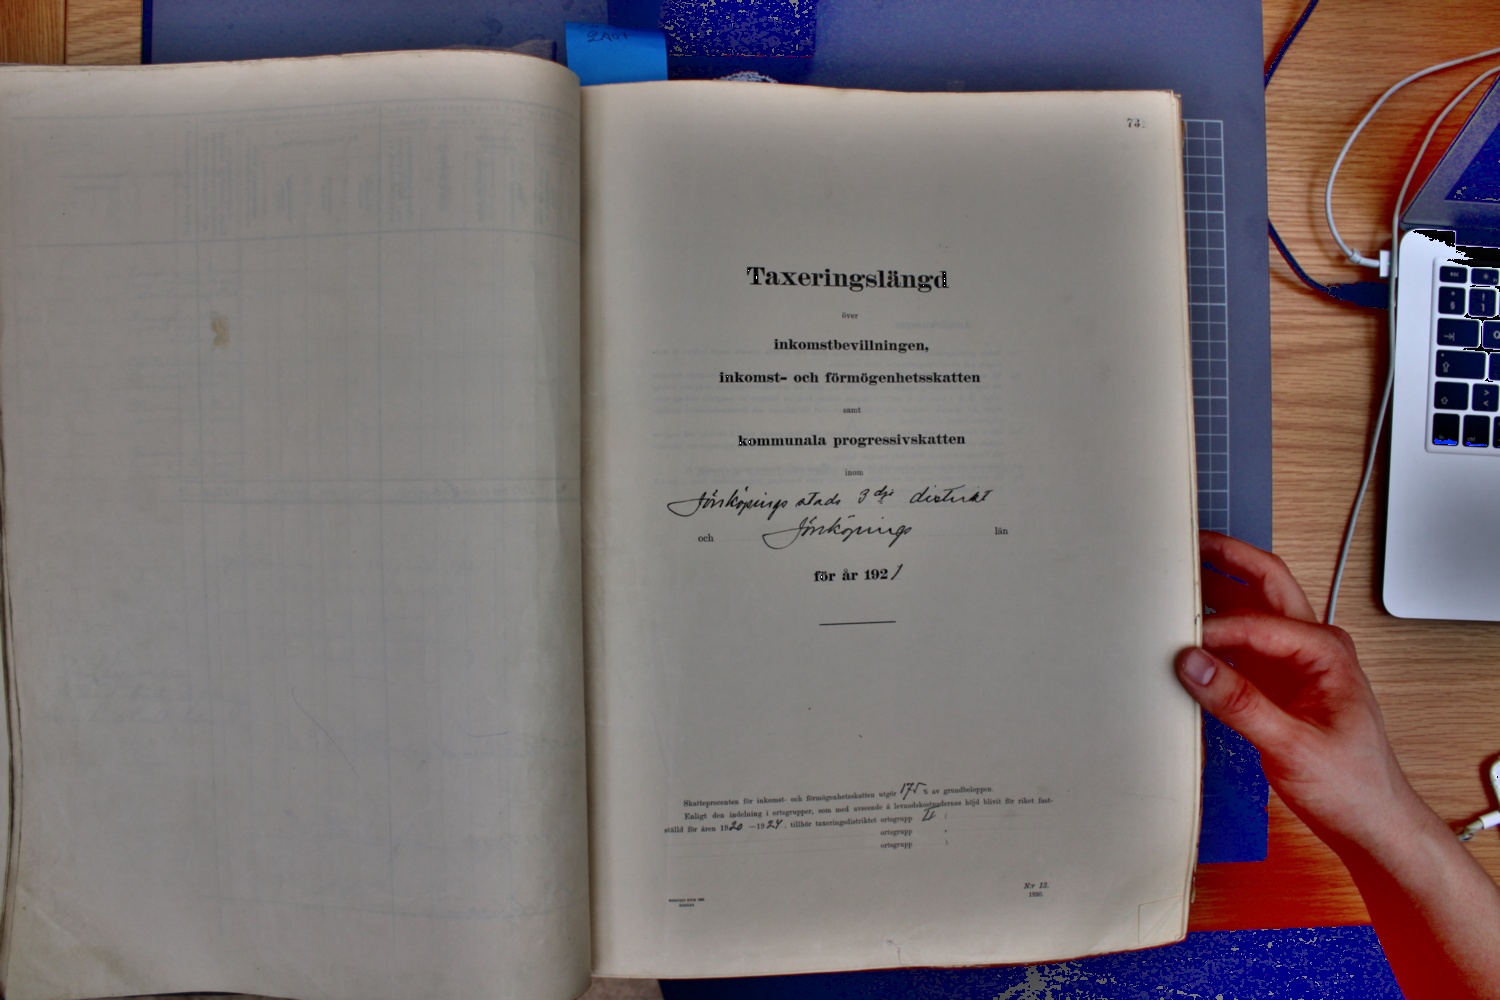 73
Taxeringslängd
över
inkomstbevillningen,
inkomst- och förmögenhetsskatten
samt
kommunala progressivskatten
inom
Jönköpings stads 3dje distrikt
och Jönköpings län
för år 1921
Skatteprocenten för inkomst- och förmögenhetsskatten utgör 175 % av grundbeloppen.
Enligt den indelning i ortsgrupper, som med avseende å levnadskostnadernas höjd blivit för riket fast-
ställd för åren 1920—1924, tillhör taxeringsdistriktet ortsgrupp II
ortsgrupp
ortsgrupp
N:r 13.
1920.